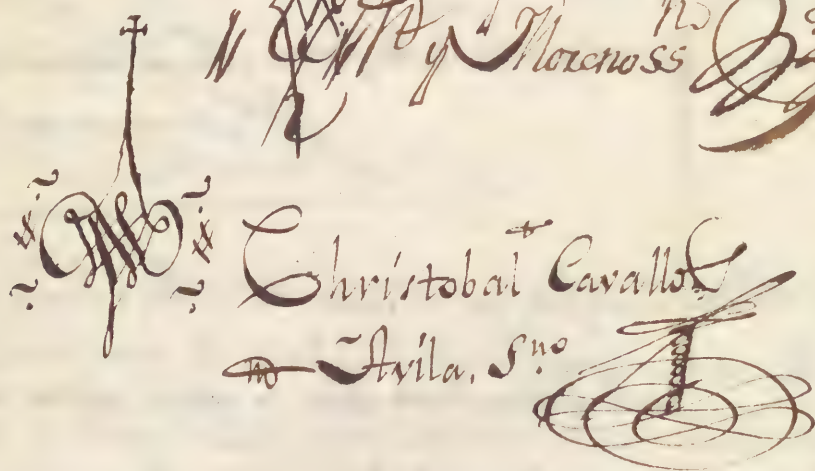 y Morenoss
Christobal Cavallo
Avila, S.no